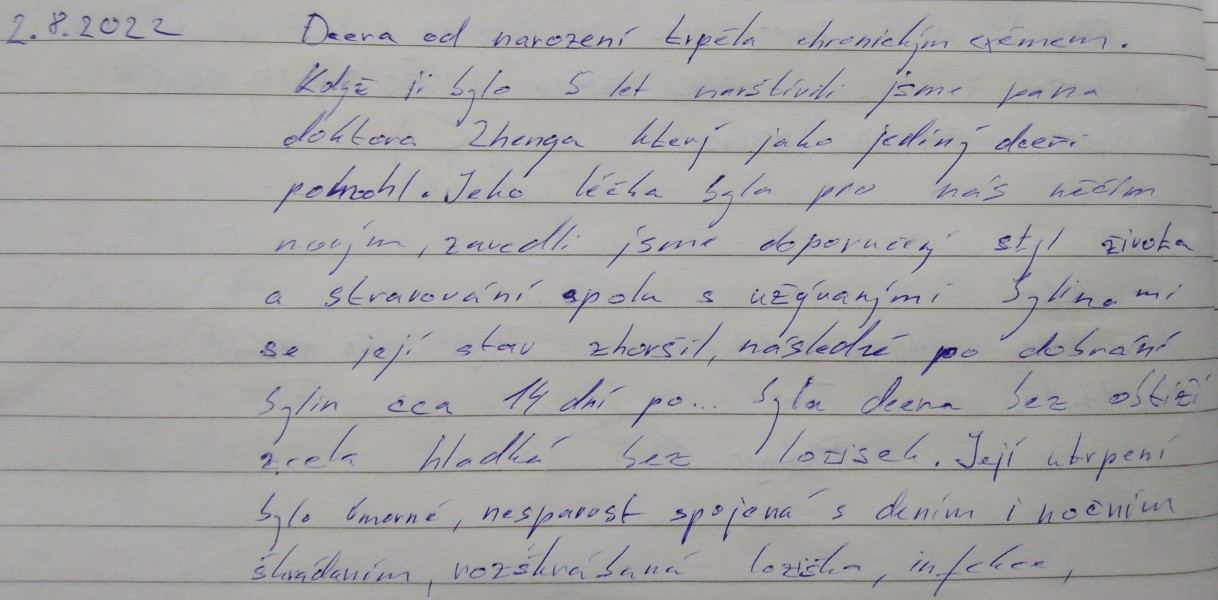 2.8.2022 Dcera od narození trpěla chronickým exémem.
Když jí bylo 5 let navštívili jsme pana
doktora Zhenga který jako jediný dceři
pomohl. Jeho léčba byla pro nás něčím
novým, zavedli jsme doporučený styl života
a stravování spolu s užívanými bylinami
se její stav zhoršil, následně po dobrání
bylin cca 14 dní po... byla dcera bez obtíží
zcela hladká bez ložisek. Její utrpení
bylo úmorné, nespavost spojená s denním i nočním
škrábaním, rozškrábaná ložiska, infekce,